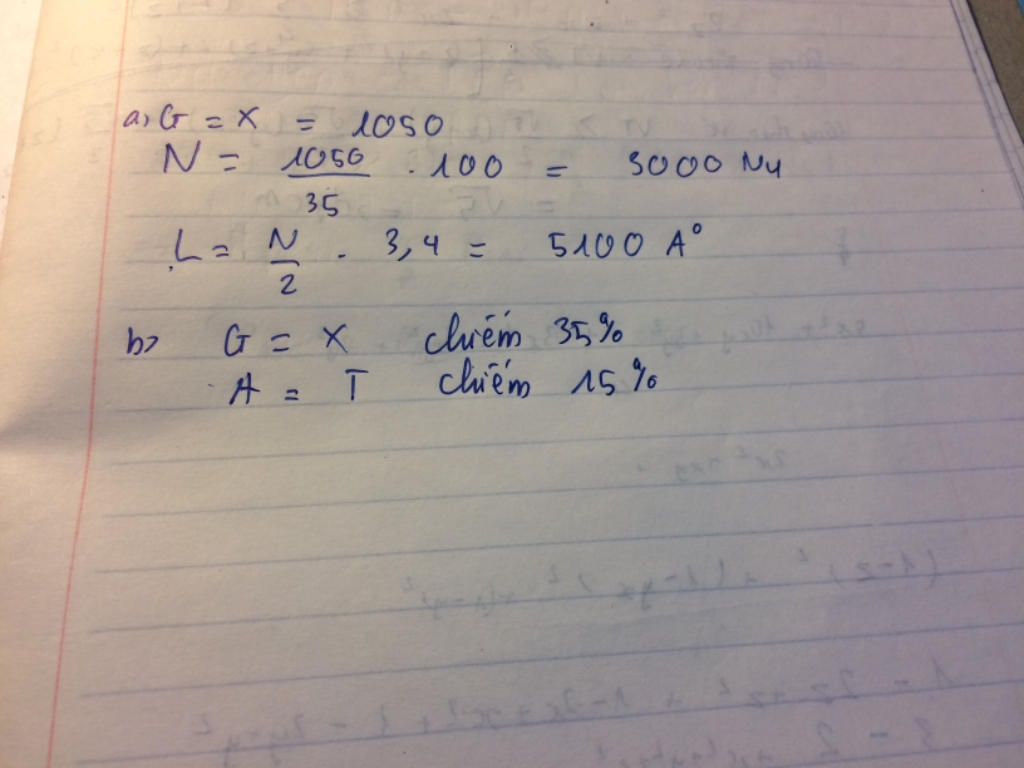 a, G = X = 1050
N = 1050/35 . 100 = 3000 Nu
L = N/2 . 3,4 = 5100 A°
b, G = X chiếm 35%
A = T chiếm 15%